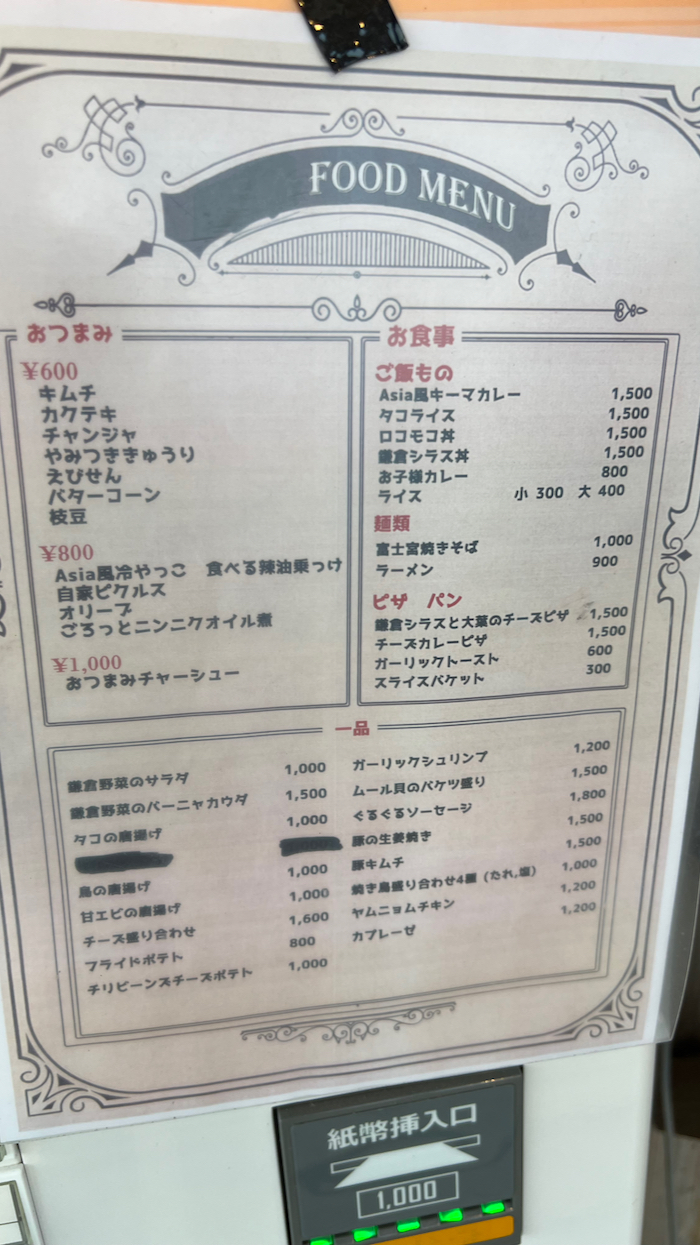 FOOD MENU
おつまみ
¥600
キムチ
カクテキ
チャンジャ
やみつききゅうり
えびせん
バターコーン
枝豆
¥800
Asia風冷やっこ 食べる辣油乗っけ
自家ピクルス
オリーブ
ごろっとニンニクオイル煮
¥1,000
おつまみチャーシュー
お食事
ご飯もの
Asia風キーマカレー 1,500
タコライス 1,500
ロコモコ丼 1,500
鎌倉シラス丼 1,500
お子様カレー 800
ライス 小 300 大 400
麺類
富士宮焼きそば 1,000
ラーメン 900
ピザ パン
鎌倉シラスと大葉のチーズピザ 1,500
チーズカレーピザ 1,500
ガーリックトースト 600
スライスバケット 300
一品
鎌倉野菜のサラダ 1,000
鎌倉野菜のバーニャカウダ 1,500
タコの唐揚げ 1,000
鳥の唐揚げ 1,000
甘エビの唐揚げ 1,000
チーズ盛り合わせ 1,600
フライドポテト 800
チリビーンズチーズポテト 1,000
ガーリックシュリンプ 1,200
ムール貝のバケツ盛り 1,500
ぐるぐるソーセージ 1,800
豚の生姜焼き 1,500
豚キムチ 1,500
焼き鳥盛り合わせ4種（たれ,塩） 1,000
ヤムニョムチキン 1,200
カプレーゼ 1,200
紙幣挿入口
1,000